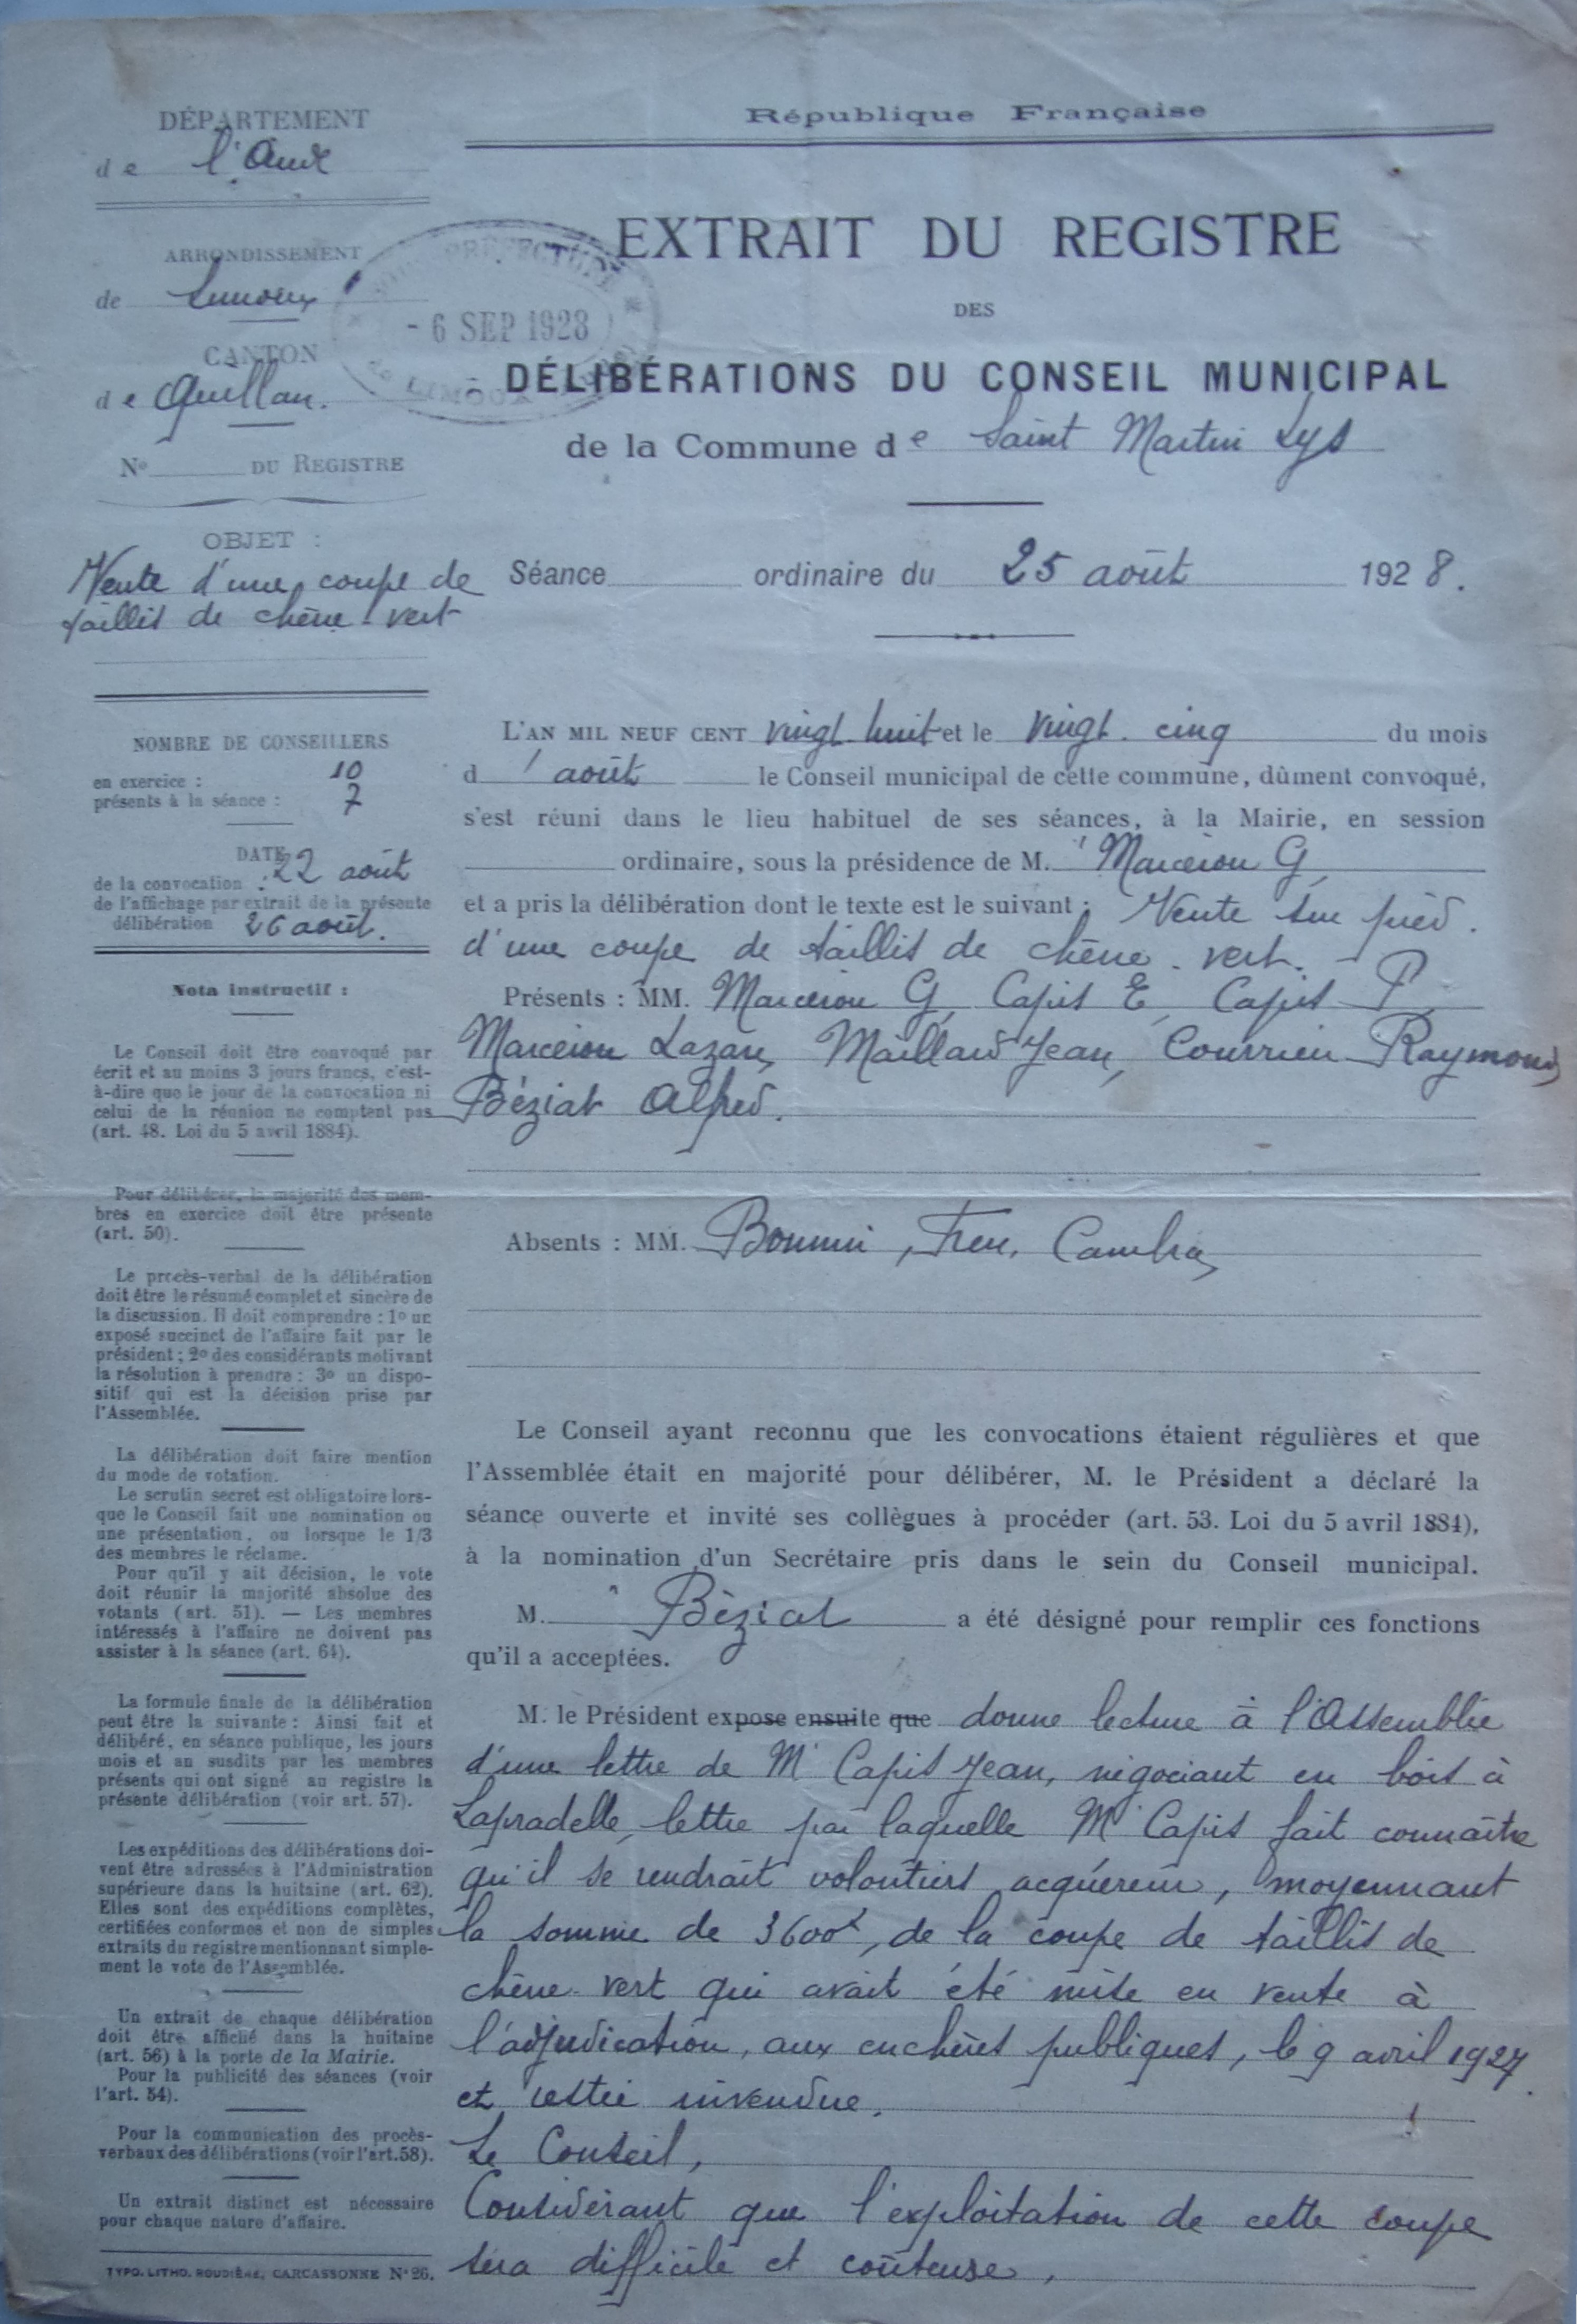 République Française
DÉPARTEMENT
de l'Aude
ARRONDISSEMENT
de Limoux
CANTON
de Quillan.
N° DU REGISTRE
OBJET :
Vente d'une coupe de
taillis de chêne-vert
SOUS-PRÉFECTURE
- 6 SEP 1928
LIMOUX
EXTRAIT DU REGISTRE
DES
DÉLIBÉRATIONS DU CONSEIL MUNICIPAL
de la Commune de Saint Martin Lys
Séance ordinaire du 25 août 1928.
NOMBRE DE CONSEILLERS
en exercice : 10
présents à la séance : 7
DATE
de la convocation : 22 août
de l'affichage par extrait de la présente
délibération 26 août.
Nota instructif :
Le Conseil doit être convoqué par
écrit et au moins 3 jours francs, c'est-
à-dire que le jour de la convocation ni
celui de la réunion ne comptent pas
(art. 48. Loi du 5 avril 1884).
Pour délibérer, la majorité des mem-
bres en exercice doit être présente
(art. 50).
Le procès-verbal de la délibération
doit être le résumé complet et sincère de
la discussion. Il doit comprendre : 1° un
exposé succinct de l'affaire fait par le
président ; 2° des considérants motivant
la résolution à prendre : 3° un dispo-
sitif qui est la décision prise par
l'Assemblée.
La délibération doit faire mention
du mode de votation.
Le scrutin secret est obligatoire lors-
que le Conseil fait une nomination ou
une présentation, ou lorsque le 1/3
des membres le réclame.
Pour qu'il y ait décision, le vote
doit réunir la majorité absolue des
votants (art. 51). — Les membres
intéressés à l'affaire ne doivent pas
assister à la séance (art. 64).
La formule finale de la délibération
peut être la suivante : Ainsi fait et
délibéré, en séance publique, les jours
mois et an susdits par les membres
présents qui ont signé au registre la
présente délibération (voir art. 57).
Les expéditions des délibérations doi-
vent être adressées à l'Administration
supérieure dans la huitaine (art. 62).
Elles sont des expéditions complètes,
certifiées conformes et non de simples
extraits du registre mentionnant simple-
ment le vote de l'Assemblée.
Un extrait de chaque délibération
doit être affiché dans la huitaine
(art. 56) à la porte de la Mairie.
Pour la publicité des séances (voir
l'art. 54).
Pour la communication des procès-
verbaux des délibérations (voir l'art.58).
Un extrait distinct est nécessaire
pour chaque nature d'affaire.
TYPO. LITHO. ROUDIÈRE, CARCASSONNE N° 26.
L'AN MIL NEUF CENT vingt-huit et le vingt-cinq du mois
d'août le Conseil municipal de cette commune, dûment convoqué,
s'est réuni dans le lieu habituel de ses séances, à la Mairie, en session
ordinaire, sous la présidence de M. Marcerou G.
et a pris la délibération dont le texte est le suivant : Vente sur pied.
d'une coupe de taillis de chêne-vert.
Présents : MM. Marcerou G, Capis E, Capis P
Marcerou Lazare, Maillard Jean, Courrieu Raymond
Béziat Alfred.
Absents : MM.
Le Conseil ayant reconnu que les convocations étaient régulières et que
l'Assemblée était en majorité pour délibérer, M. le Président a déclaré la
séance ouverte et invité ses collègues à procéder (art. 53. Loi du 5 avril 1884),
à la nomination d'un Secrétaire pris dans le sein du Conseil municipal.
M. Béziat a été désigné pour remplir ces fonctions
qu'il a acceptées.
M. le Président expose ensuite que donne lecture à l'Assemblée
d'une lettre de Mr Capis Jean, négociant en bois à
Lapradelle, lettre par laquelle Mr Capis fait connaître
qu'il se rendrait volontiers acquéreur, moyennant
la somme de 3600f, de la coupe de taillis de
chêne-vert qui avait été mise en vente à
l'adjudication, aux enchères publiques, le 9 avril 1927
et restée invendue.
Le Conseil,
Considérant que l'exploitation de cette coupe
sera difficile et coûteuse,